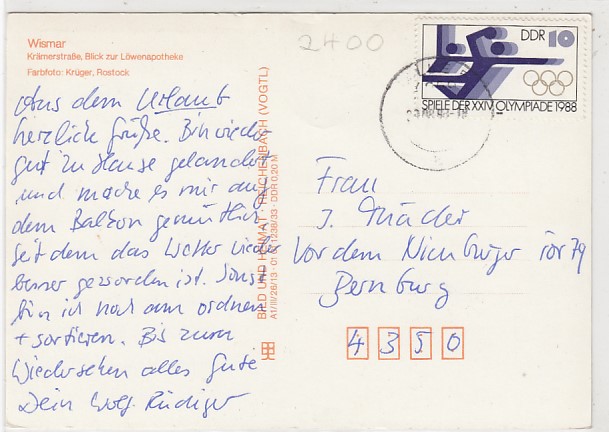 Wismar
Krämerstraße, Blick zur Löwenapotheke
Farbfoto: Krüger, Rostock
2400
DDR 10
SPIELE DER XXIV. OLYMPIADE 1988
Aus dem Urlaub
herzliche Grüße. Bin wieder
gut zu Hause gelandet
und mache es mir auf
dem Balkon gemütlich
seit dem das Wetter wieder
besser geworden ist. Sonst
bin ich noch am ordnen
+ sortieren. Bis zum
Wiedersehen alles Gute
Dein Wolf-Rüdiger
BILD UND HEIMAT · REICHENBACH (VOGTL)
A1/III/26/13 · 01 01 1236/33 · DDR 0,20 M
Frau
J. Mäder
Vor dem Nienburger Tor 79
Bernburg
4350